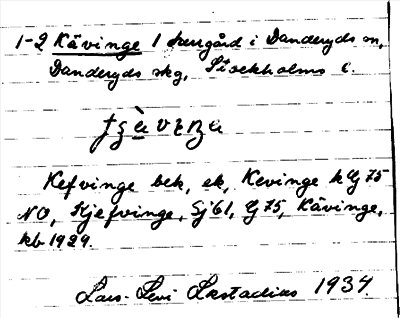 1-2 Kävinge 1 herrgård i Danderyds sn,
Danderyds skg, Stockholms l.
Kefvinge bek, ek, Kevinge k Gj 75
NO, Kjefvinge, Sj 61, Gj 75, Kävinge,
kb 1929.
Lars-Levi Læstadius 1934